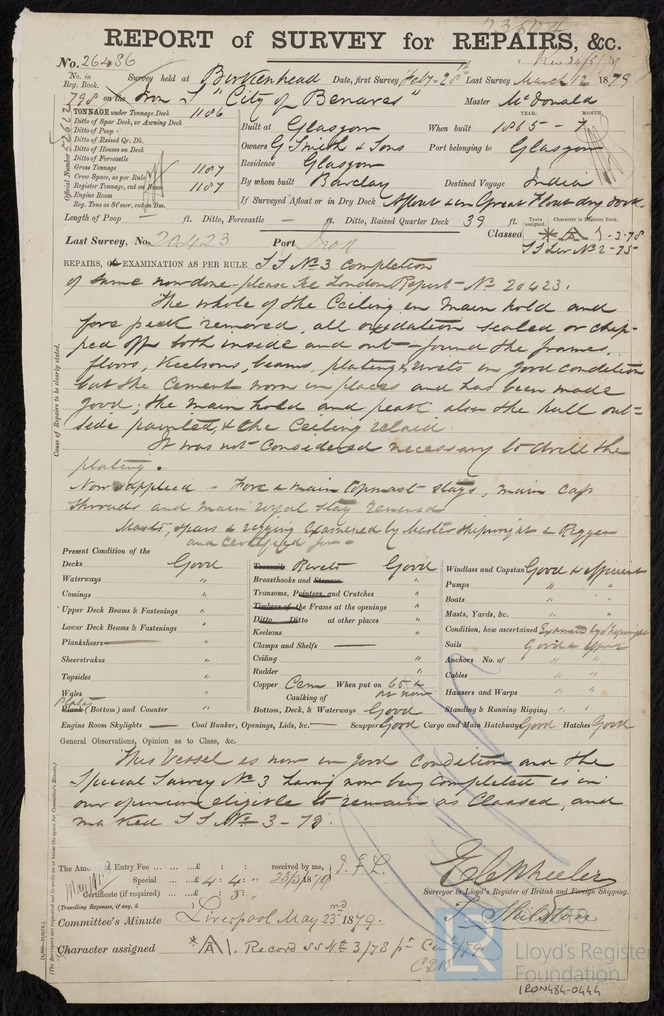 REPORT of SURVEY for REPAIRS, &c.
No. 26486
No. in Reg. Book. Survey held at Birkenhead Date, first Survey Feby 28th Last Survey March 12 1879
798 on the Iron S "City of Benares" Master McDonald
TONNAGE under Tonnage Deck 1186
Ditto of Spar Deck, or Awning Deck
Ditto of Poop
Ditto of Raised Qr. Dk.
Ditto of Houses on Deck
Ditto of Forecastle
Gross Tonnage 1187
Crew Space, as per Rule
Register Tonnage, cut on Beam 1187
Engine Room
Reg. Tons as St'mer, cut on Bm.
Official Number
Built at Glasgow When built 1865 - 7
YEAR. MONTH.
Owners G Smith & Sons Port belonging to Glasgow
Residence Glasgow
By whom built Barclay Destined Voyage India
If Surveyed Afloat or in Dry Dock Afloat & in Great Float dry dock
Length of Poop — ft. Ditto, Forecastle — ft. Ditto, Raised Quarter Deck 39 ft.
Years assigned. Character in Register Book.
Last Survey, No. 20423 Port Iron Classed A 3-78
SS Liv No 2-75
REPAIRS, OR EXAMINATION AS PER RULE SS No 3 completion
of same now done - please see London Report - No 20423.
The whole of the Ceiling in main hold and
fore peak removed, all oxidation scaled or chip-
ped off both inside and out - found the frames,
floors, Keelsons, beams, plating & rivets in good condition
but the Cement worn in places and has been made
good, the main hold and peak also the hull out-
side painted, & the Ceiling relaid.
It was not considered necessary to drill the
plating.
Now supplied - Fore & main topmast stays, main cap
shrouds and main royal stay renewed
Masts, spars & rigging examined by Master Shipwright & Rigger
and certified for -
Cause of Repairs to be clearly stated.
Present Condition of the
Decks Good
Waterways "
Comings "
Upper Deck Beams & Fastenings "
Lower Deck Beams & Fastenings "
Planksheers —
Sheerstrakes "
Topsides "
Wales "
Plates
Plank (Bottom) and Counter "
Treenails Rivets Good
Breasthooks and Stemson "
Transoms, Pointers, and Crutches "
Timbers of the Frame at the openings "
Ditto Ditto at other places "
Keelsons "
Clamps and Shelfs —
Ceiling "
Rudder "
Copper Cem When put on 65 &
Caulking of as now
Bottom, Deck, & Waterways Good
Windlass and Capstan Good & efficient
Pumps " "
Boats " "
Masts, Yards, &c. " "
Condition, how ascertained Examined by Shipwright
Sails Good & effient
Anchors No. of " "
Cables " "
Hausers and Warps " "
Standing & Running Rigging " "
Engine Room Skylights — Coal Bunker, Openings, Lids, &c. — Scuppers Good Cargo and Main Hatchways Good Hatches Good
General Observations, Opinion as to Class, &c.
This Vessel is now in good condition and the
Special Survey No 3 having now been completed is in
our opinion eligible to remain as Classed, and
marked SS No 3 - 79.
Entry Fee ... £ : : received by me,
Special ... £ 4 : 4 : 23/5/1879
Certificate (if required) ... £ : 5 :
(Travelling Expenses, if any, £ )
Surveyor to Lloyd's Register of British and Foreign Shipping.
Committee's Minute Liverpool May 23rd 1879.
Character assigned A1. Record SS No 3/78
Lloyd's Register
Foundation
IRON484-0444